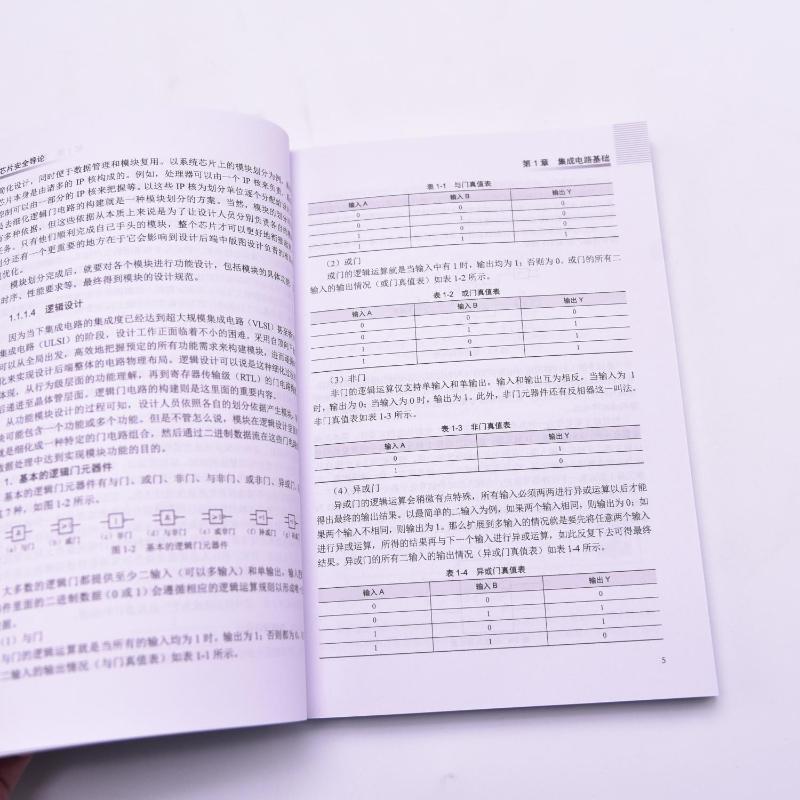 芯片安全导论
简化设计，同时便于数据管理和模块复用。以系统芯片上的模块划分为例，
芯片本身是由诸多的 IP 核来构成的。例如，处理器可以由一个 IP 核来负责，
控制可以由一部分的 IP 核来把握等。以这些 IP 核为划分单位逐个分配
是去细化逻辑门电路的构建就是一种模块划分的方案。当然，模块的划分
有多种依据，但这些依据从本质上来说是为了让设计人员分别负责各自的
任务。只有他们顺利完成自己手头的模块，整个芯片才可以更好地
划分还有一个更重要的地方在于它会影响到设计后端中版图设计负责的
优化。
模块划分完成后，就要对各个模块进行功能设计，包括模块的具体功能、
时序、性能要求等。最终得到模块的设计规范。
1.1.1.4 逻辑设计
因为当下集成电路的集成度已经达到超大规模集成电路（VLSI）甚至
集成电路（ULSI）的阶段，设计工作正面临着不小的困难。采用自顶向下
可以从全局出发，高效地把握预定的所有功能需求来构建模块，进而
化来实现设计后端整体的电路物理布局。逻辑设计可以说是这种细化过
体现，从行为级层面的功能理解，再到寄存器传输级（RTL）的门电路
后通进至晶体管层面。逻辑门电路的构建则是这里面的重要内容。
从功能模块设计的过程可知，设计人员依照各自的划分依据产生模块，
块可能包含一个功能或多个功能。但是不管怎么说，模块在逻辑设计
就是细化成一种特定的门电路组合，然后通过二进制数据流在这些门电路
数据处理中达到实现模块功能的目的。
1. 基本的逻辑门元器件
基本的逻辑门元器件有与门、或门、非门、与非门、或非门、异或门、
7 种，如图 1-2 所示。
& ≥1 1 & ≥1 =1 =
(a) 与门 (b) 或门 (c) 非门 (d) 与非门 (e) 或非门 (f) 异或门 (g)
图 1-2 基本的逻辑门元器件
大多数的逻辑门都提供至少二输入（可以多输入）和单输出，输入
件里面的二进制数据（0 或 1）会遵循相应的逻辑运算规则以形成唯一
据。
（1）与门
与门的逻辑运算就是当所有的输入均为 1 时，输出为 1；否则都为 0。
二输入的输出情况（与门真值表）如表 1-1 所示。
第 1 章 集成电路基础
表 1-1 与门真值表
输入 A 输入 B 输出 Y
0 0 0
0 1 0
1 0 0
1 1 1
（2）或门
或门的逻辑运算就是当输入中有 1 时，输出均为 1；否则为 0。或门的所有二
输入的输出情况（或门真值表）如表 1-2 所示。
表 1-2 或门真值表
输入 A 输入 B 输出 Y
0 0 0
0 1 1
1 0 1
1 1 1
（3）非门
非门的逻辑运算仅支持单输入和单输出，输入和输出互为相反，当输入为 1
时，输出为 0；当输入为 0 时，输出为 1。此外，非门元器件还有反相器这一叫法。
非门真值表如表 1-3 所示。
表 1-3 非门真值表
输入 A 输出 Y
0 1
1 0
（4）异或门
异或门的逻辑运算会稍微有点特殊，所有输入必须两两进行异或运算以后才能
得出最终的输出结果。以最简单的二输入为例，如果两个输入相同，则输出为 0；如
果两个输入不相同，则输出为 1。那么扩展到多输入的情况就是要先将任意两个输入
进行异或运算，所得的结果再与下一个输入进行异或运算，如此反复下去可得最终
结果。异或门的所有二输入的输出情况（异或门真值表）如表 1-4 所示。
表 1-4 异或门真值表
输入 A 输入 B 输出 Y
0 0 0
0 1 1
1 0 1
1 1 0
5